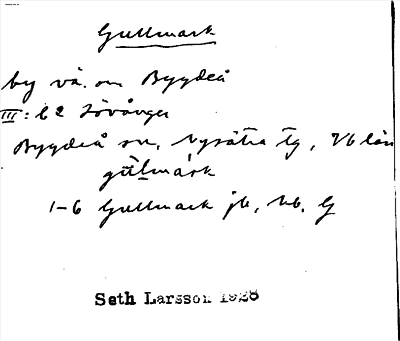 Gullmark
by vä. om Bygdeå
III: b2 Lövånger
Bygdeå sn, Nysätra tg, Vb län
gullmark
1-6 Gullmark jb, hb. G
Seth Larsson 1928